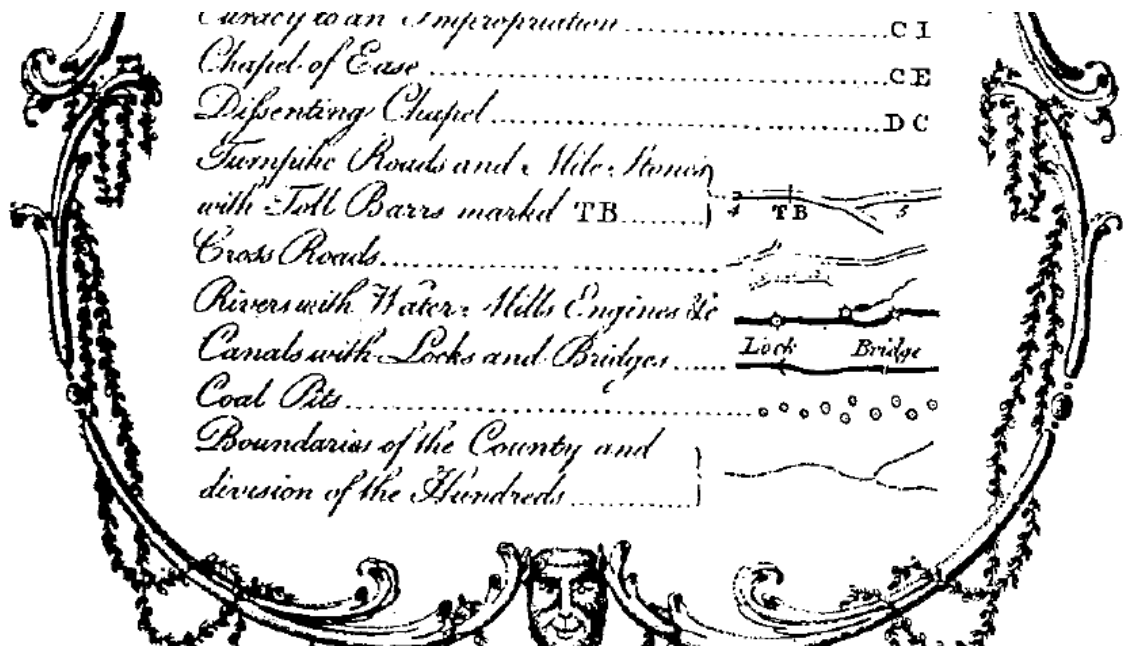 Curacy to an Impropriation C I
Chapel of Ease C E
Dissenting Chapel D C
Turnpike Roads and Mile Stones
with Toll Barrs markd TB 4 T B 5
Cross Roads
Rivers with Water Mills Engines &c
Lock Bridge
Canals with Locks and Bridges
Coal Pits
Boundaries of the County and
division of the Hundreds